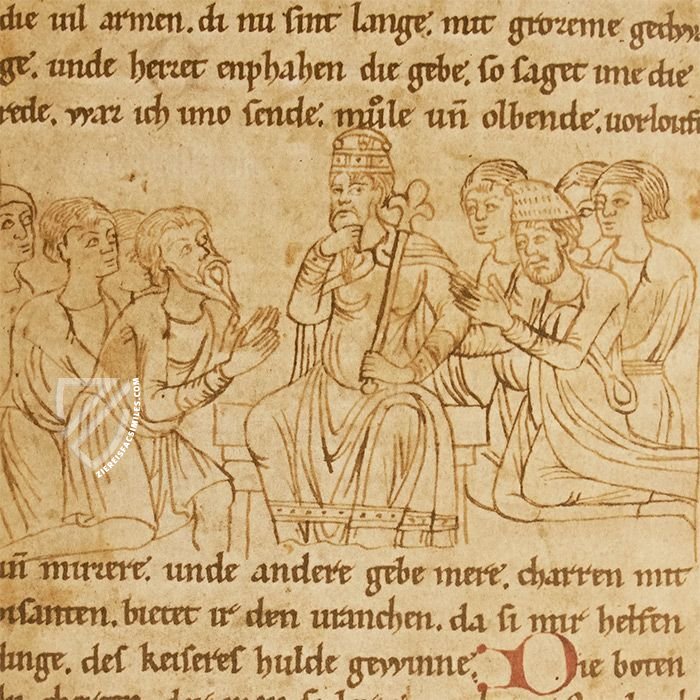 die uil armen. di nu sint lange. mit grozeme gedwu
ge. unde herzet enphahen die gebe. so saget ime die
rede. waz ich imo sende. můle uñ olbende. uorlouft
ZIEREISFACSIMILES.COM
uñ mirzere. unde andere gebe mere. charren mit
bisanten. bietet ir den uranchen. da si mir helfen
dinge. des keiseres hulde gewinne. Die boten